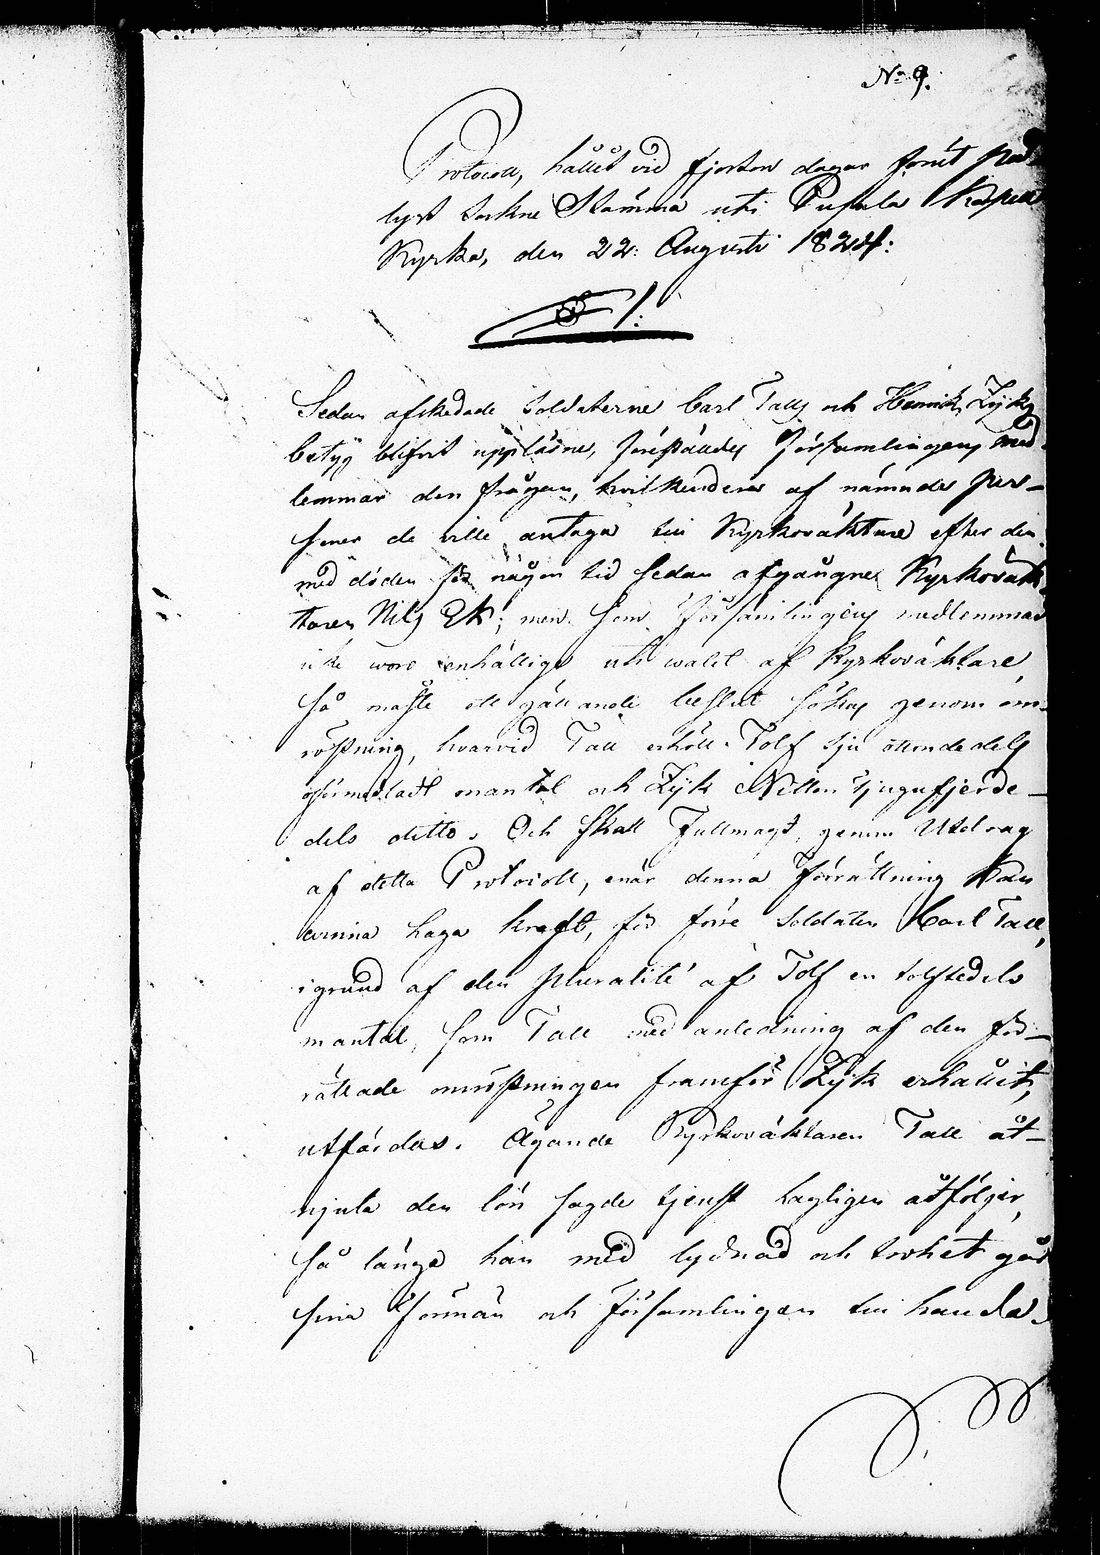 No 9.
Protocoll, hållit vid fjorton dagar förut på-
lyst Sockne Stämma uti Pusula Kapell
Kyrka, den 22: Augusti 1824:
§ 1:
Sedan afskedade Soldaterne Carl Talls och Henrik Zyks
betyg blifvit uppläsne, föreställdes församlingens med-
lemmar den frågan, hvilkendera af nämnde per-
soner de ville antaga till Kyrkoväktare efter den
med döden för någon tid sedan afgångne Kyrkoväk-
taren Nils Ek; men som församlingens medlemmar
icke woro enhällige uti walet af Kyrkoväktare,
så måste ett gällande beslut sökas genom om-
röstning, hvarvid Tall erhöll Tolf sju ottondedels
oförmedladt mantal och Zyk Nitton tjugufjerde-
dels ditto. Och skall Fullmagt, genom Utdrag
af detta Protocoll, enär denna förrättning kan
winna laga kraft, för förre Soldaten Carl Tall,
i grund af den pluralité af Tolf en tolftedels
mantal, som Tall med anledning af den för-
rättade omröstningen framför Zyk erhållit,
utfärdas. Ägande Kyrkoväktaren Tall åt-
njuta den lön sagde tjenst lagligen åtföljer,
så länge han med lydnad och trohet går
sina Förmän och Församlingen till handa.